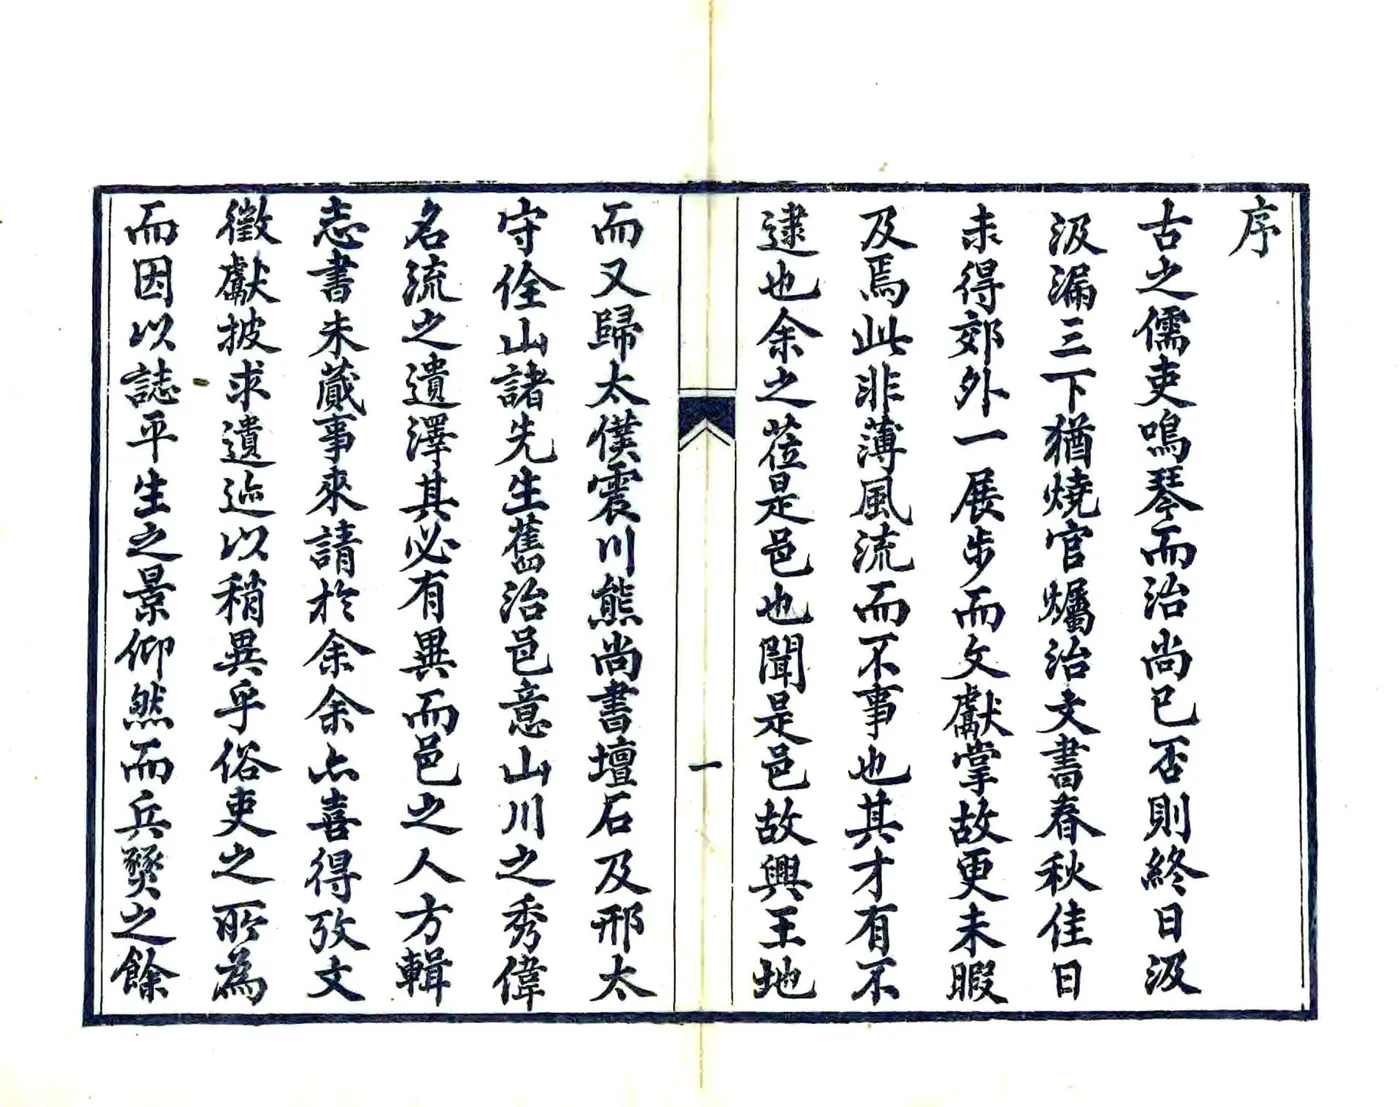 序
古之儒吏鳴琴而治尚已否則終日汲
汲漏三下猶燒官爥治文書春秋佳日
未得郊外一展步而文獻掌故更未暇
及焉此非薄風流而不事也其才有不
逮也余之莅是邑也聞是邑故興王地
一
而又歸太僕震川熊尚書壇石及邢太
守佺山諸先生舊治邑意山川之秀偉
名流之遺澤其必有異而邑之人方輯
志書未蕆事來請於余余亦喜得攷文
徵獻披求遺迹以稍異乎俗吏之所為
而因以誌平生之景仰然而兵燹之餘